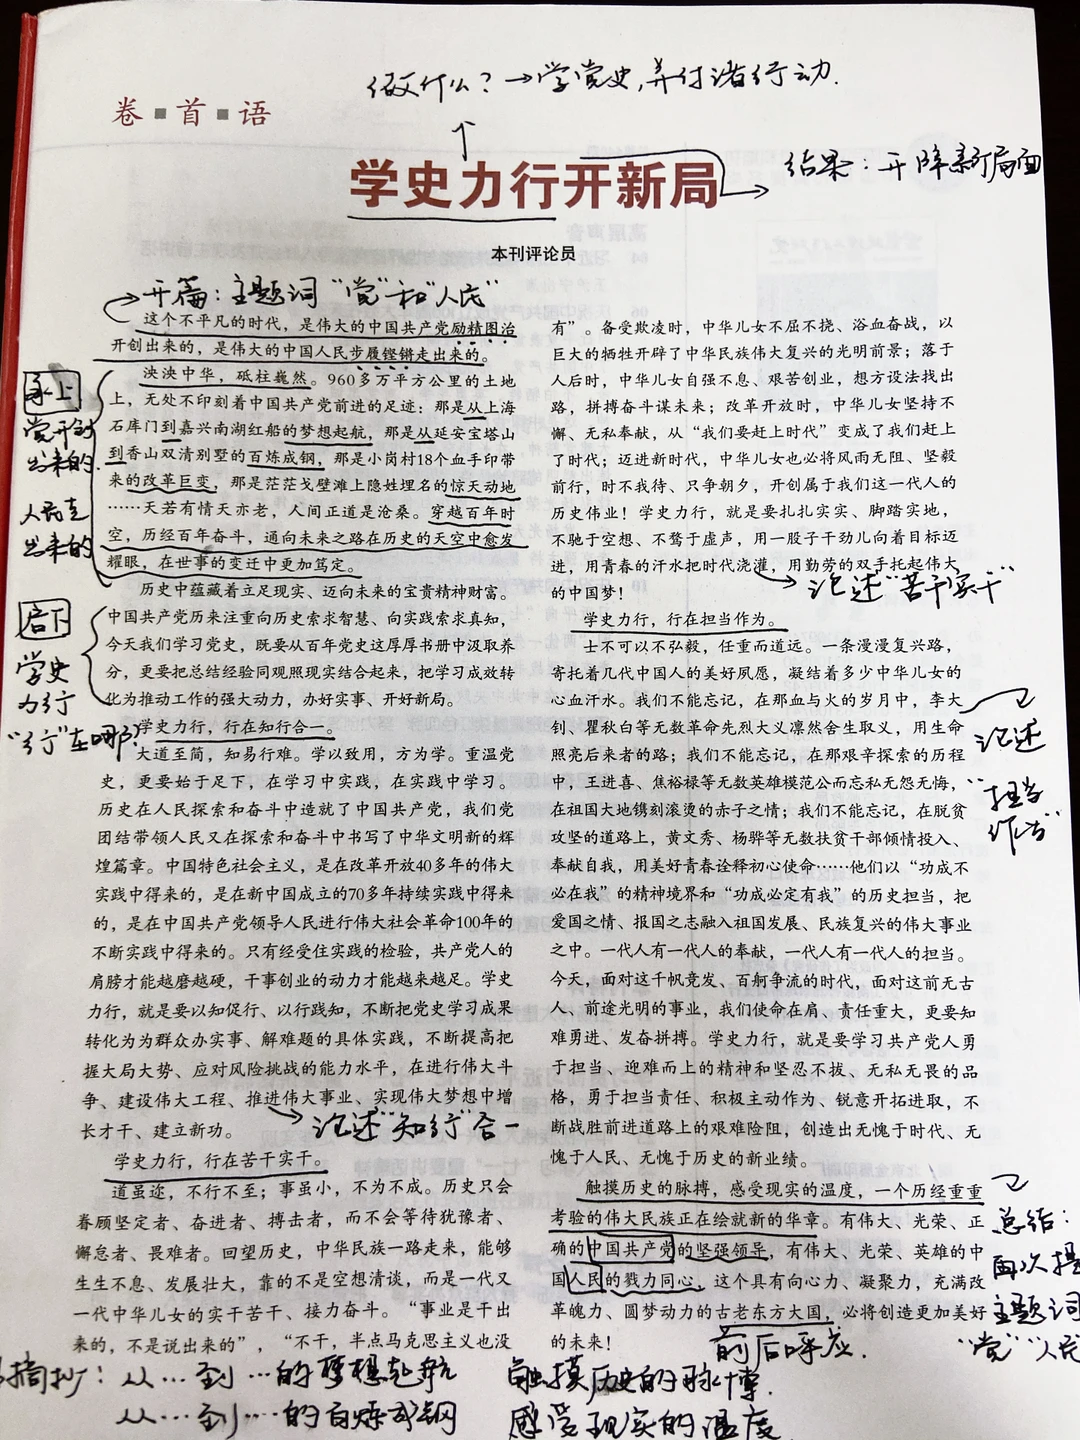 做什么？→学党史,并付诸行动.
卷·首·语
学史力行开新局
结果：开辟新局面
本刊评论员
开篇：主题词“党”和“人民”
这个不平凡的时代，是伟大的中国共产党励精图治
开创出来的，是伟大的中国人民步履铿锵走出来的。
泱泱中华，砥柱巍然。960多万平方公里的土地
上，无处不印刻着中国共产党前进的足迹：那是从上海
石库门到嘉兴南湖红船的梦想起航，那是从延安宝塔山
到香山双清别墅的百炼成钢，那是小岗村18个血手印带
来的改革巨变，那是茫茫戈壁滩上隐姓埋名的惊天动地
……天若有情天亦老，人间正道是沧桑。穿越百年时
空，历经百年奋斗，通向未来之路在历史的天空中愈发
耀眼，在世事的变迁中更加笃定。
承上
党开创
出来的.
人民走
出来的
历史中蕴藏着立足现实、迈向未来的宝贵精神财富。
中国共产党历来注重向历史索求智慧、向实践索求真知，
今天我们学习党史，既要从百年党史这厚厚书册中汲取养
分，更要把总结经验同观照现实结合起来，把学习成效转
化为推动工作的强大动力，办好实事、开好新局。
启下
学史
力行
“行”在哪？
学史力行，行在知行合一。
大道至简，知易行难。学以致用，方为学。重温党
史，更要始于足下，在学习中实践，在实践中学习。
历史在人民探索和奋斗中造就了中国共产党，我们党
团结带领人民又在探索和奋斗中书写了中华文明新的辉
煌篇章。中国特色社会主义，是在改革开放40多年的伟大
实践中得来的，是在新中国成立的70多年持续实践中得来
的，是在中国共产党领导人民进行伟大社会革命100年的
不断实践中得来的。只有经受住实践的检验，共产党人的
肩膀才能越磨越硬，干事创业的动力才能越来越足。学史
力行，就是要以知促行、以行践知，不断把党史学习成果
转化为为群众办实事、解难题的具体实践，不断提高把
握大局大势、应对风险挑战的能力水平，在进行伟大斗
争、建设伟大工程、推进伟大事业、实现伟大梦想中增
长才干、建立新功。
论述“知行”合一
学史力行，行在苦干实干。
道虽迩，不行不至；事虽小，不为不成。历史只会
眷顾坚定者、奋进者、搏击者，而不会等待犹豫者、
懈怠者、畏难者。回望历史，中华民族一路走来，能够
生生不息、发展壮大，靠的不是空想清谈，而是一代又
一代中华儿女的实干苦干、接力奋斗。“事业是干出
来的，不是说出来的”，“不干，半点马克思主义也没
有”。备受欺凌时，中华儿女不屈不挠、浴血奋战，以
巨大的牺牲开辟了中华民族伟大复兴的光明前景；落于
人后时，中华儿女自强不息、艰苦创业，想方设法找出
路，拼搏奋斗谋未来；改革开放时，中华儿女坚持不
懈、无私奉献，从“我们要赶上时代”变成了我们赶上
了时代；迈进新时代，中华儿女也必将风雨无阻、坚毅
前行，时不我待、只争朝夕，开创属于我们这一代人的
历史伟业！学史力行，就是要扎扎实实、脚踏实地，
不驰于空想、不骛于虚声，用一股子干劲儿向着目标迈
进，用青春的汗水把时代浇灌，用勤劳的双手托起伟大
的中国梦！
论述“苦干实干”
学史力行，行在担当作为。
士不可以不弘毅，任重而道远。一条漫漫复兴路，
寄托着几代中国人的美好夙愿，凝结着多少中华儿女的
心血汗水。我们不能忘记，在那血与火的岁月中，李大
钊、瞿秋白等无数革命先烈大义凛然舍生取义，用生命
照亮后来者的路；我们不能忘记，在那艰辛探索的历程
中，王进喜、焦裕禄等无数英雄模范公而忘私无怨无悔，
在祖国大地镌刻滚烫的赤子之情；我们不能忘记，在脱贫
攻坚的道路上，黄文秀、杨骅等无数扶贫干部倾情投入、
奉献自我，用美好青春诠释初心使命……他们以“功成不
必在我”的精神境界和“功成必定有我”的历史担当，把
爱国之情、报国之志融入祖国发展、民族复兴的伟大事业
之中。一代人有一代人的奉献，一代人有一代人的担当。
今天，面对这千帆竞发、百舸争流的时代，面对这前无古
人、前途光明的事业，我们使命在肩、责任重大，更要知
难勇进、发奋拼搏。学史力行，就是要学习共产党人勇
于担当、迎难而上的精神和坚忍不拔、无私无畏的品
格，勇于担当责任、积极主动作为、锐意开拓进取，不
断战胜前进道路上的艰难险阻，创造出无愧于时代、无
愧于人民、无愧于历史的新业绩。
论述
“担当
作为”
触摸历史的脉搏，感受现实的温度，一个历经重重
考验的伟大民族正在绘就新的华章。有伟大、光荣、正
确的中国共产党的坚强领导，有伟大、光荣、英雄的中
国人民的戮力同心，这个具有向心力、凝聚力，充满改
革魄力、圆梦动力的古老东方大国，必将创造更加美好
的未来！
总结：
再次提
主题词
“党”“人民
前后呼应.
摘抄：从…到…的梦想起航
从…到…的百炼成钢
触摸历史的脉搏.
感受现实的温度